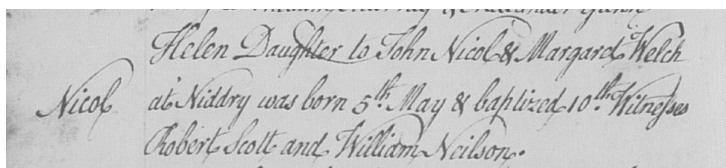 Helen Daughter to John Nicol & Margaret Welch
Nicol at Niddry was born 5th May & baptized 10th Witnesses
Robert Scott and William Neilson.